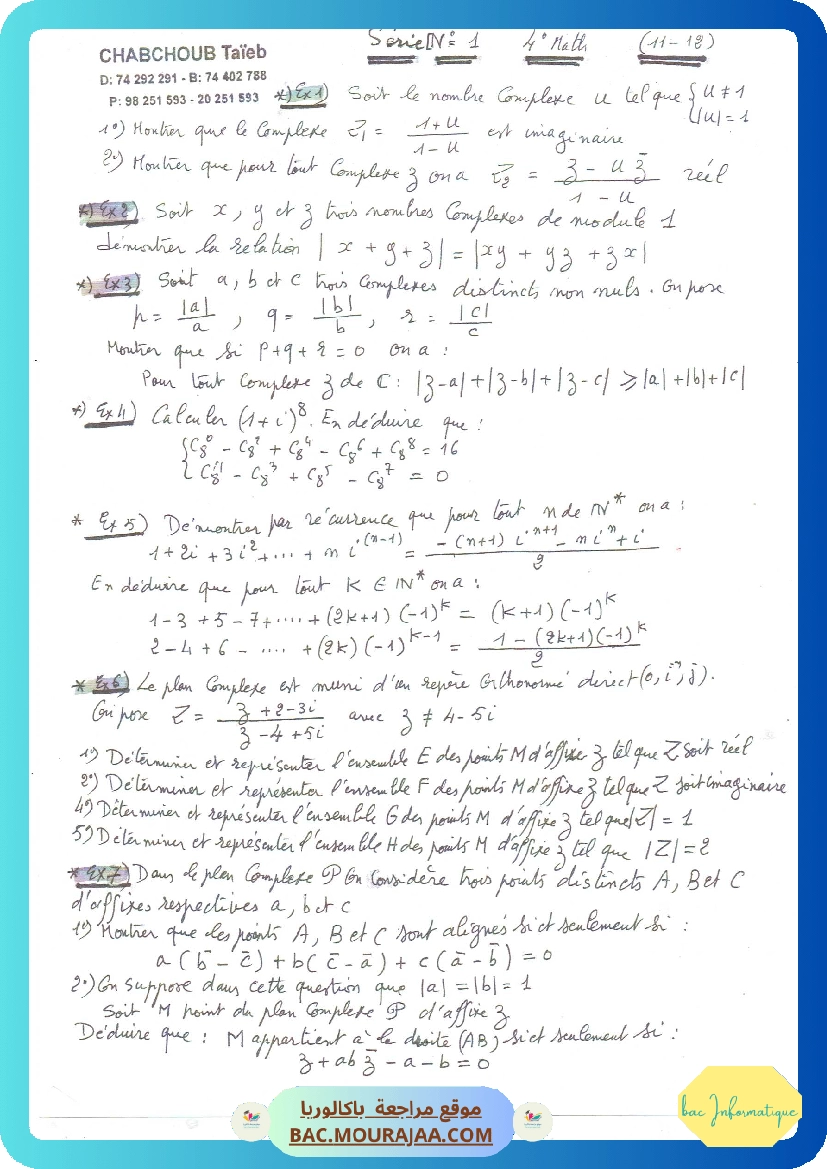 Série N° 1 4° Math (11-12)
CHABCHOUB Taïeb
D: 74 292 291 - B: 74 402 788
P: 98 251 593 - 20 251 593
*) Ex 1) Soit le nombre Complexe u tel que { u ≠ 1
|u| = 1
1°) Montrer que le Complexe Z₁ = (1+u)/(1-u) est imaginaire
2°) Montrer que pour tout Complexe z on a Z₂ = (z - u z̄)/(1 - u) réel
*) Ex 2) Soit x, y et z trois nombres Complexes de module 1
démontrer la relation | x + y + z | = | xy + yz + zx |
*) Ex 3) Soit a, b et c trois Complexes distincts non nuls. On pose
p = |a|/a , q = |b|/b , r = |c|/c
Montrer que si p+q+r = 0 on a :
Pour tout Complexe z de ℂ : |z-a| + |z-b| + |z-c| ≥ |a| + |b| + |c|
*) Ex 4) Calculer (1+i)⁸. En déduire que :
{ C₈⁰ - C₈² + C₈⁴ - C₈⁶ + C₈⁸ = 16
{ C₈¹ - C₈³ + C₈⁵ - C₈⁷ = 0
* Ex 5) Démontrer par récurrence que pour tout n de ℕ* on a :
1 + 2i + 3i² + .... + n i^(n-1) = (-(n+1) i^(n+1) - n i^n + i)/2
En déduire que pour tout K ∈ ℕ* on a :
1 - 3 + 5 - 7 + ..... + (2k+1)(-1)^k = (k+1)(-1)^k
2 - 4 + 6 - .... + (2k)(-1)^(k-1) = (1 - (2k+1)(-1)^k)/2
* Ex 6) Le plan Complexe est muni d'un repère Orthonormé direct (o, i⃗, j⃗).
On pose Z = (z + 2 - 3i)/(z - 4 + 5i) avec z ≠ 4 - 5i
1°) Déterminer et représenter l'ensemble E des points M d'affixe z tel que Z soit réel
2°) Déterminer et représenter l'ensemble F des points M d'affixe z tel que Z soit imaginaire
4°) Déterminer et représenter l'ensemble G des points M d'affixe z tel que |Z| = 1
5°) Déterminer et représenter l'ensemble H des points M d'affixe z tel que |Z| = 2
* Ex 7) Dans le plan Complexe P On Considère trois points distincts A, B et C
d'affixes respectives a, b et c
1°) Montrer que les points A, B et C sont alignés si et seulement si :
a ( b̄ - c̄ ) + b ( c̄ - ā ) + c ( ā - b̄ ) = 0
2°) On suppose dans cette question que |a| = |b| = 1
Soit M point du plan Complexe P d'affixe z
Déduire que : M appartient à la droite (AB) si et seulement si :
z + ab z̄ - a - b = 0
موقع مراجعة باكالوريا
BAC.MOURAJAA.COM
bac Informatique